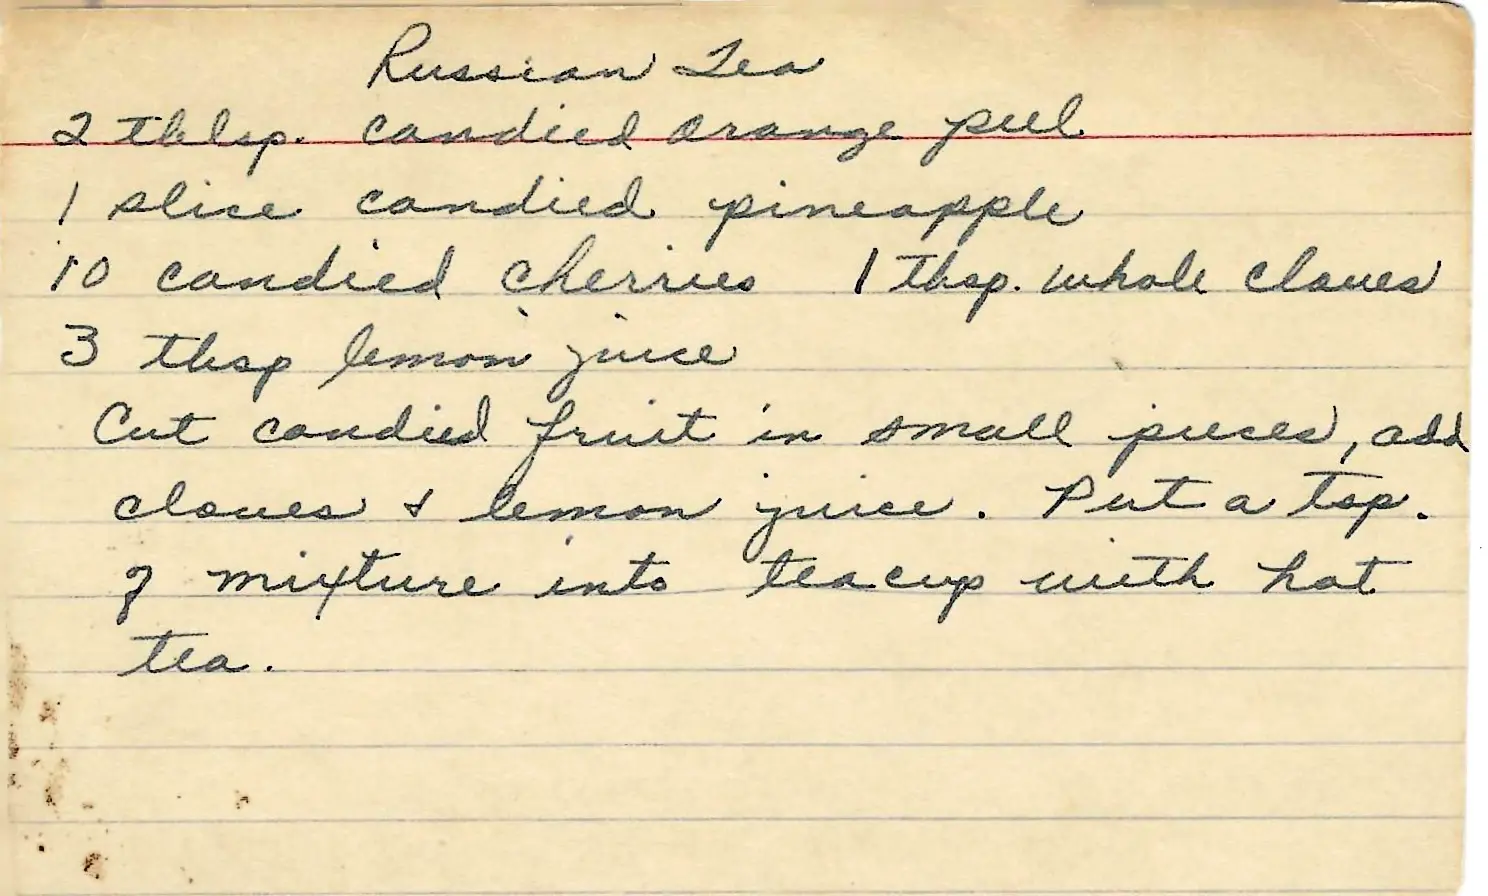 Russian Tea
2 tblsp. candied orange peel
1 slice candied pineapple
10 candied cherries 1 tbsp. whole cloves
3 tbsp lemon juice
Cut candied fruit in small pieces, add
cloves & lemon juice. Put a tsp.
of mixture into teacup with hot
tea.